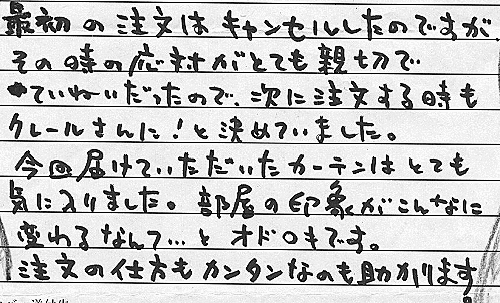 最初の注文はキャンセルしたのですが
その時の応対がとても親切で
ていねいだったので、次に注文する時も
クレールさんに!と決めていました。
今回届けていただいたカーテンはとても
気に入りました。部屋の印象がこんなに
変わるなんて…と オドロキです。
注文の仕方もカンタンなのも助かります。